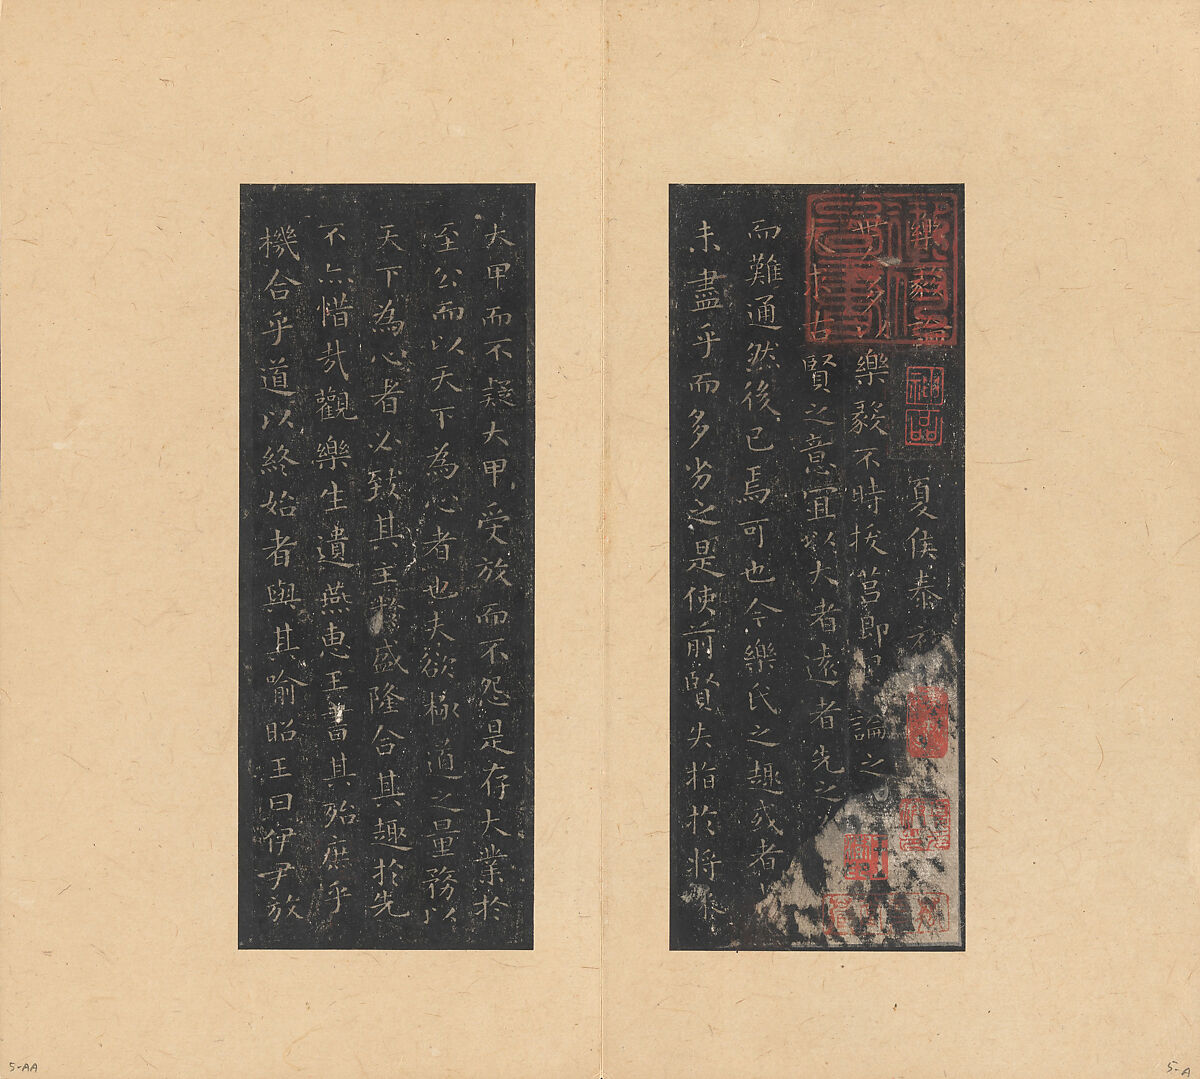 樂毅論 神品 夏侯泰初
世人多以樂毅不時拔莒即 論之
夫求古賢之意宜以大者遠者先之
而難通然後已焉可也今樂氏之趣或者
未盡乎而多劣之是使前賢失指於將來
大甲而不疑大甲受放而不怨是存大業於
至公而以天下為心者也夫欲極道之量務以
天下為心者必致其主於盛隆合其趣於先
不亦惜哉觀樂生遺燕惠王書其殆庶乎
機合乎道以終始者與其喻昭王曰伊尹放
5-AA
5-A